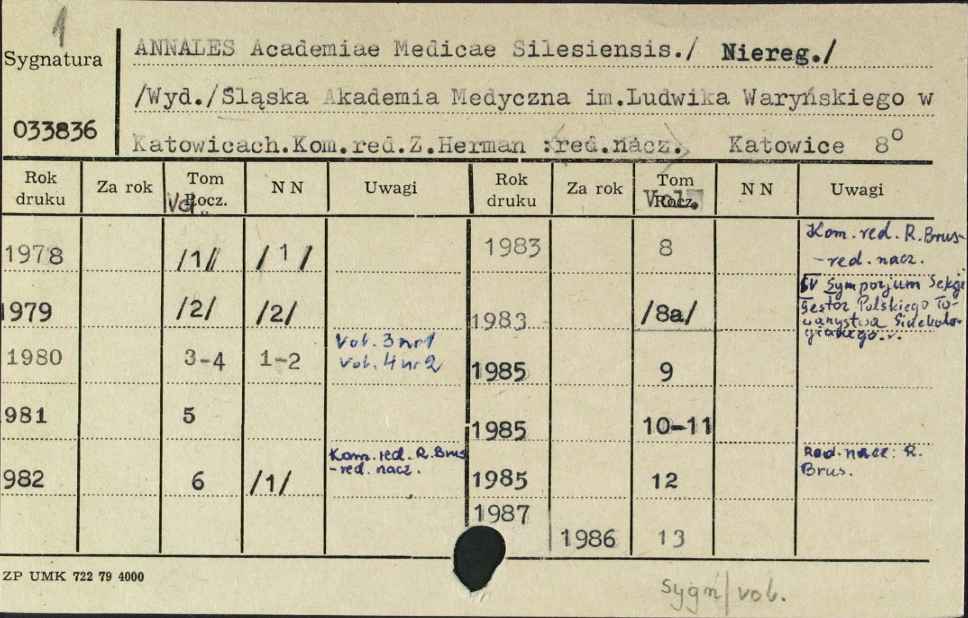 1
Sygnatura
033836
ANNALES Academiae Medicae Silesiensis./ Niereg./
/Wyd./Śląska Akademia Medyczna im.Ludwika Waryńskiego w
Katowicach.Kom.red.Z.Herman :red.nacz. Katowice 8°
Rok druku Za rok Tom Rocz. Vol. N N Uwagi Rok druku Za rok Tom Rocz. Vol. N N Uwagi
1978 /1/ /1/
1979 /2/ /2/
1980 3-4 1-2 Vol. 3 nr 1
Vol. 4 nr 2
981 5
982 6 /1/ Kom. red. R. Brus
-red. nacz.
1983 8 Kom. red. R. Brus-
-red. nacz.
1983 /8a/ IV Symposjum Sekcji
Gestoz Polskiego To-
1985 9
1985 10-11
1985 12 Red. nacz: R.
Brus.
1987
1986 13
ZP UMK 722 79 4000
sygn/vol.